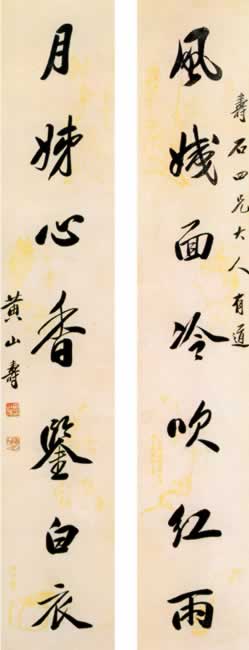 壽石四兄大人有道
風面冷吹紅雨
月姊心香鑒白衣
黃山壽